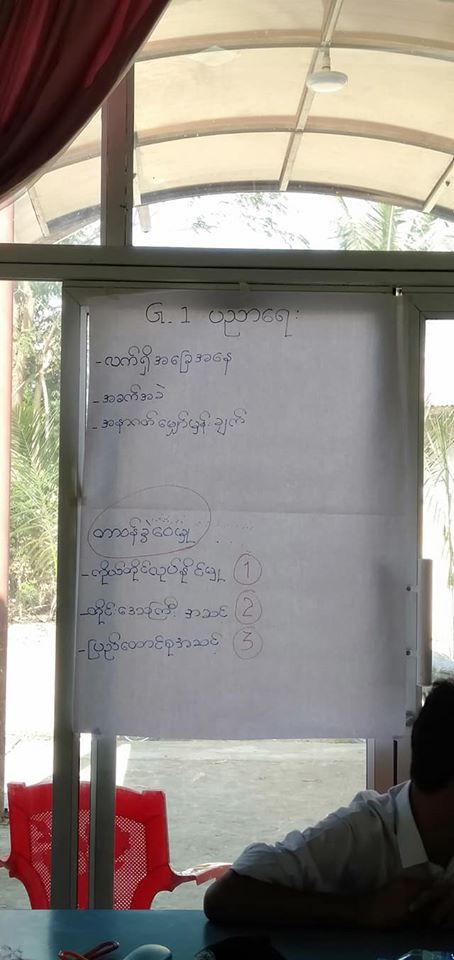 G. 1 ပညာရေး
- လက်ရှိအခြေအနေ
- အခက်အခဲ
- အနာဂတ် မျှော်မှန်းချက်
တာဝန်ခွဲဝေမှု
- ကိုယ်တိုင်လုပ်နိုင်မှု ①
- တိုင်းဒေသကြီး အဆင့် ②
- ပြည်ထောင်စုအဆင့် ③